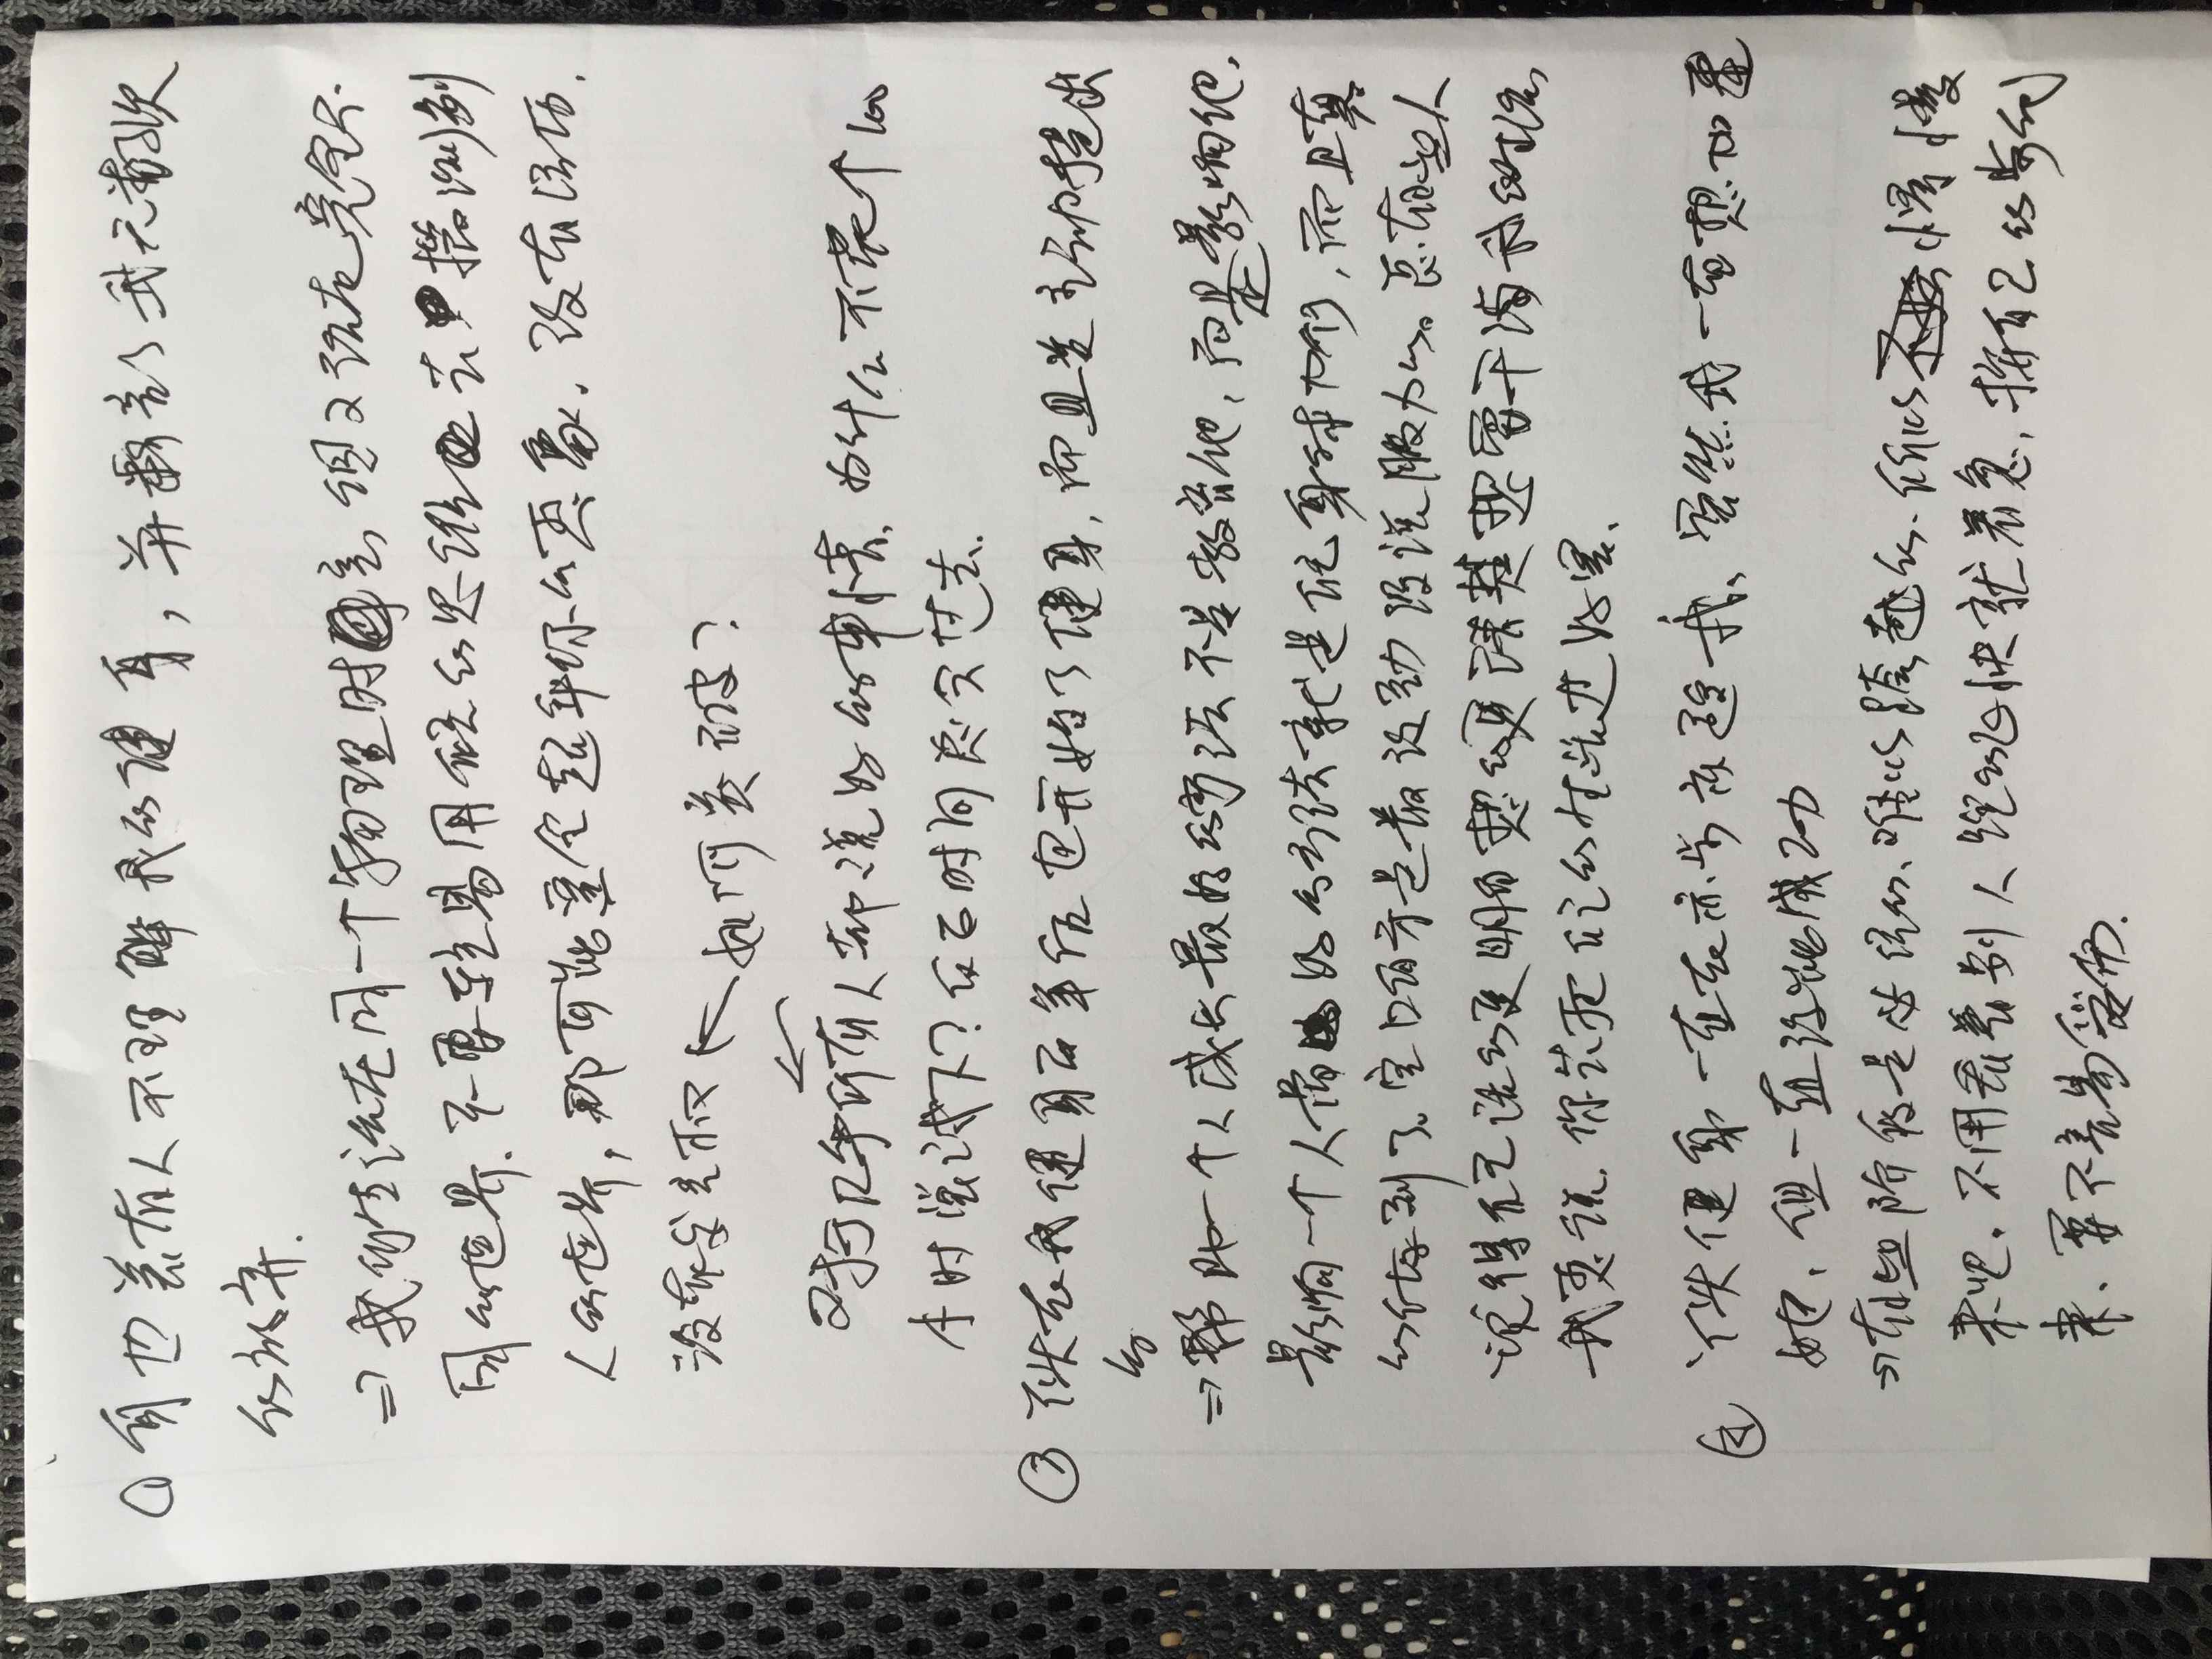 ① 身边总有人不理解我的健身，并断言了我无数次
的放弃.
⇒ 我们生活在同一个物理时空，但又活在完全不
同的世界. 不要轻易用自己的思维去揣测别
人的世界，那可能完全超乎你的想象. 没有经历，
没有发言权 ← 如何突破？
←
对于几乎所有人都说好的事情，为什么不花个100
小时尝试下？反正时间总会过去.
③ 伙在我健身百年后也开始了健身，而且是主动提出
的
⇒ 帮助一个人成长最好的方法不是教育他，而是影响他.
影响一个人最好的方法就是自己身体力行，而且真
的做到了. 空口白牙是最没劲没说服力的. 总有些人
觉得自己活的更明白想的更清楚想要干涉我的生活
我想说，你先把自己的生活过好吧.
④ 伙健身一直在亦步亦趋我，虽然我一直想加速
她，但一直没能成功
⇒ 有些阶段是必经的、难以跨越的. 所以慢慢
来吧. 不用看着别人跑的飞快就着急，按自己的步伐
来. 要不容易受伤.